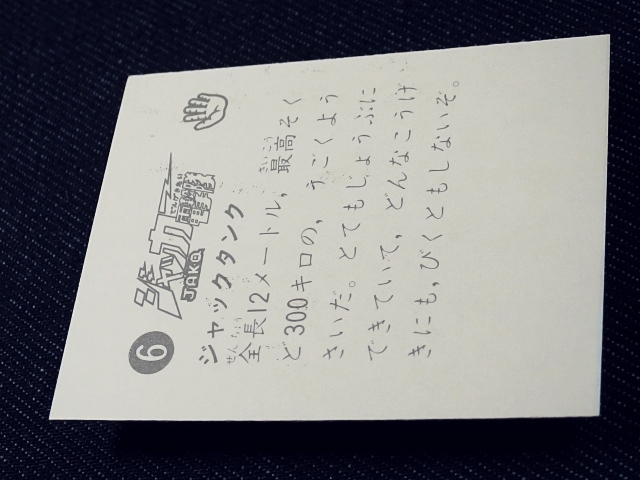 6
ジャッカー電撃隊
でんげきたい
JAKQ
ジャックタンク
ぜんちょう さいこう
全長12メートル,最高そく
ど300キロの,うごくよう
さいだ。とてもじょうぶに
できていて,どんなこうげ
きにも,びくともしないぞ。